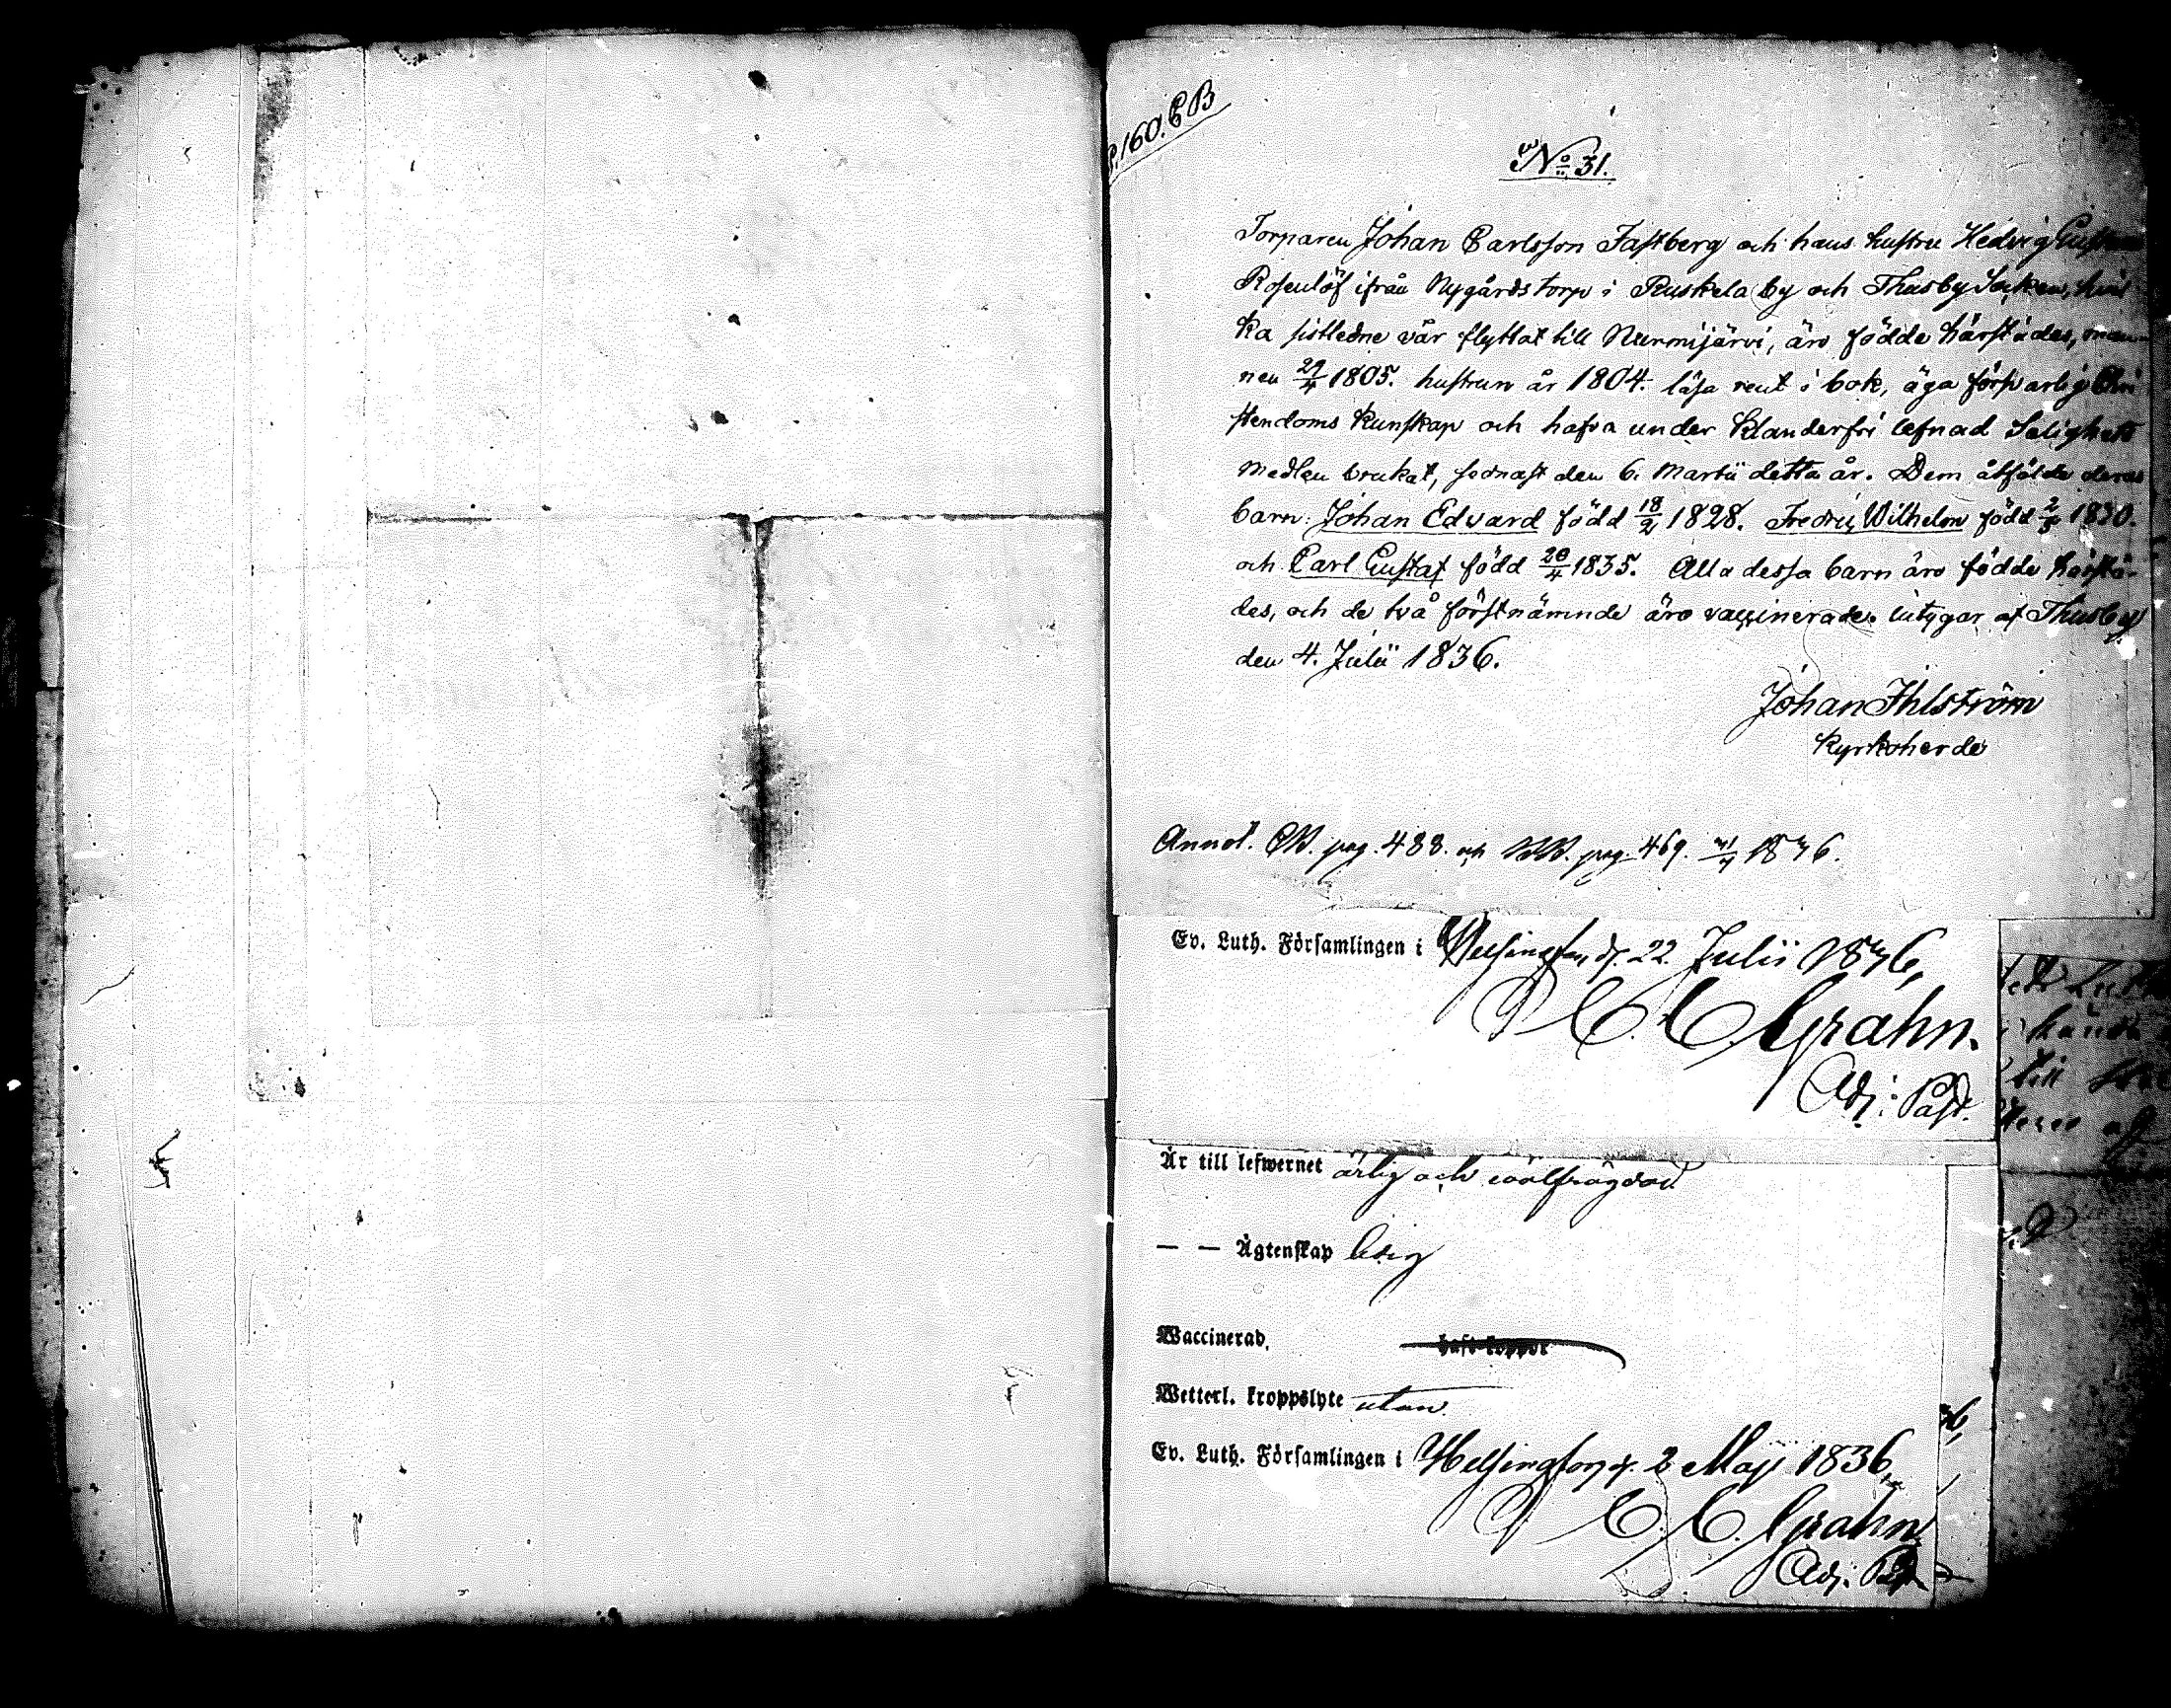 p. 160. CB
No 31.
Torparen Johan Carlsson Fastberg och hans hustru Hedvig
Rosenlöf ifrån Nygårdstorp i Ruskela by och Thusby Socken, hvil
ka sistledne vår flyttat till Nurmijärvi, äro födde härstädes, man-
nen 29/4 1805. hustrun år 1804. läsa rent i bok, äga försvarlig Chri
stendoms kunskap och hafva under klanderfri lefnad Salighets
medlen brukat, sednast den 6. Martii detta år. Dem åtfölde deras
barn: Johan Edvard född 18/2 1828. Fredric Wilhelm född 2/3 1830.
och Carl Gustaf född 20/4 1835. Alla dessa barn äro födde härstä-
des, och de två förstnämnde äro vaccinerade. intygar af Thusby
den 4. Julii 1836.
Johan Ihlström
Kyrkoherde
Annot. pag. 488. och pag. 469. 1836.
Ev. Luth. Församlingen i Helsingfors d. 22 Julii 1836,
C. C. Grahn.
Adj: Past.
Är till lefwernet ärlig och wälfrägdad
— — Ägtenskap ledig
Waccinerad. haft koppor
Wetterl. kroppslyte utan
Ev. Luth. Församlingen i Helsingfors d. 2 Maji 1836
C. C. Grahn
Adj. Past